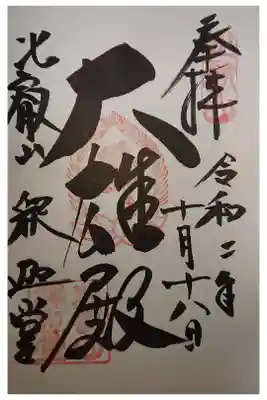 奉拝
令和二年
十月十八日
大雄殿
比叡山 釈迦堂